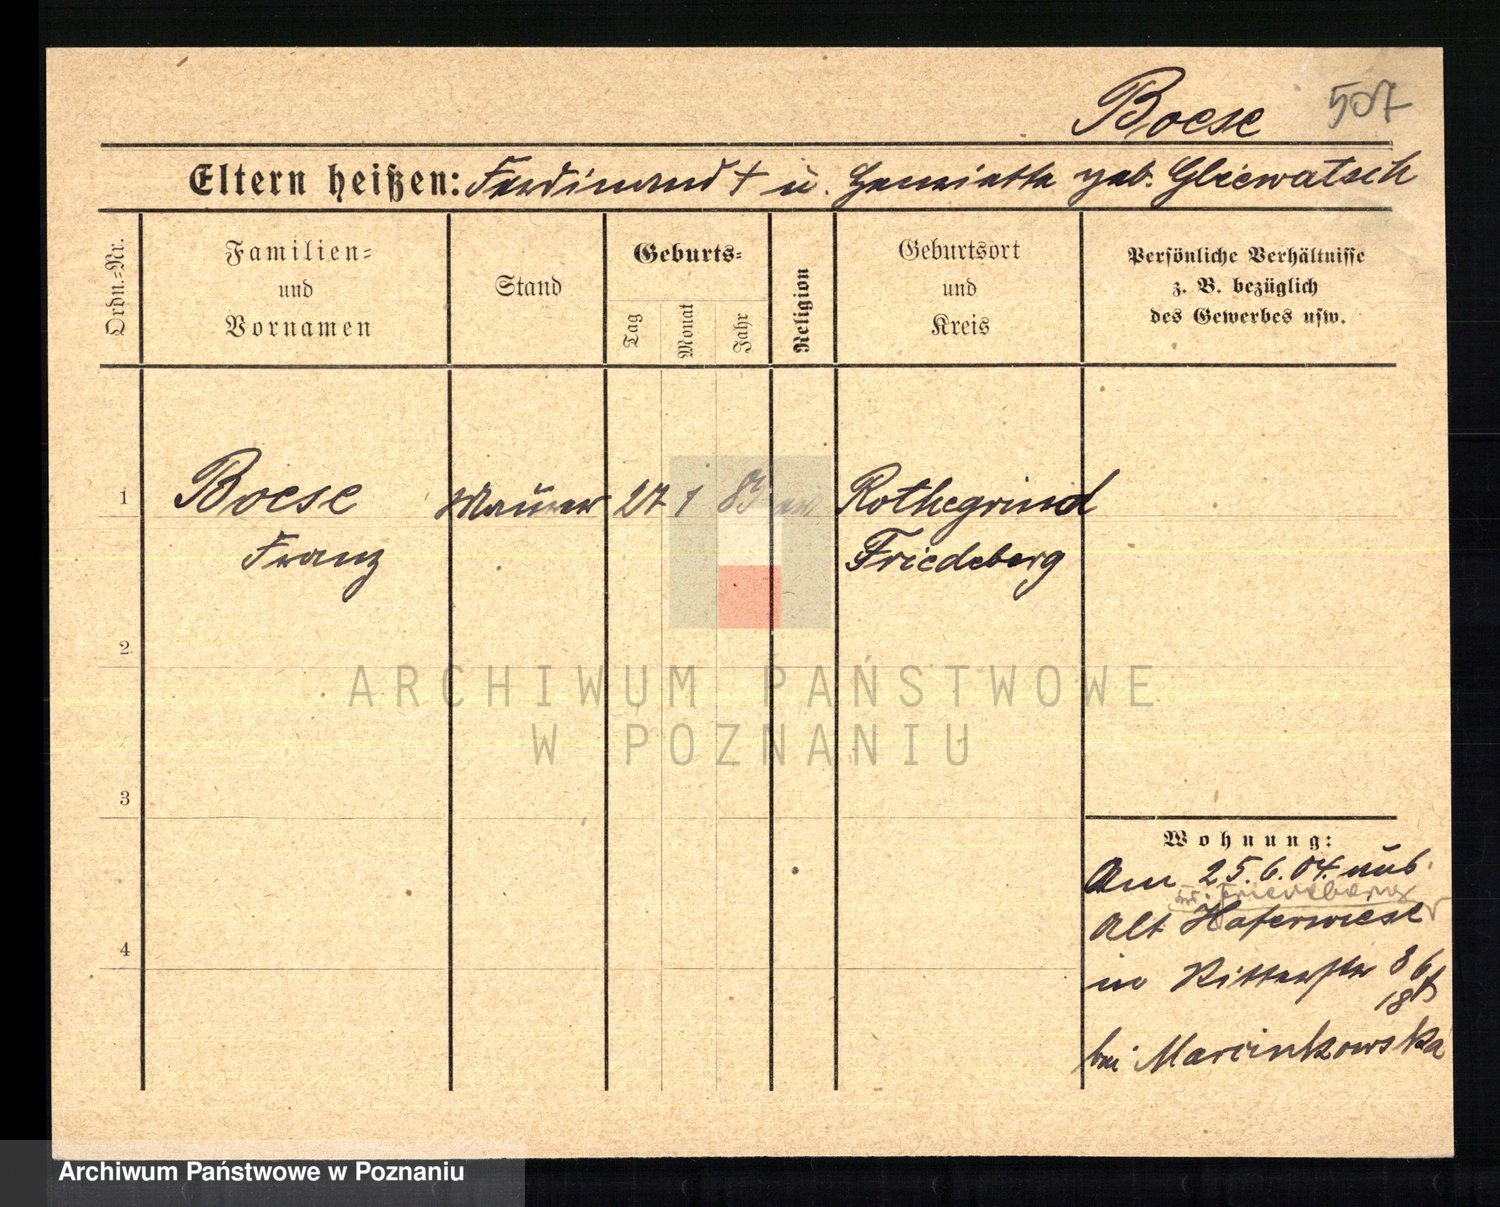 Boese 507
Eltern heißen: Ferdinand † u. Henriette geb. Gliewatsch
Ordn.-Nr.
Familien-
und
Vornamen
Stand
Geburts-
Tag
Monat
Jahr
Religion
Geburtsort
und
Kreis
Persönliche Verhältnisse
z. B. bezüglich
des Gewerbes usw.
1 Boese Maurer 27 1 83 ev Rothegrind
Franz Friedeberg
2
3
4
ARCHIWUM PAŃSTWOWE
W POZNANIU
Wohnung:
Am 25.6.04. aus
Friedeberg
Alt Haferwiese
in Ritterstr 36
bei Marcinkowska
Archiwum Państwowe w Poznaniu